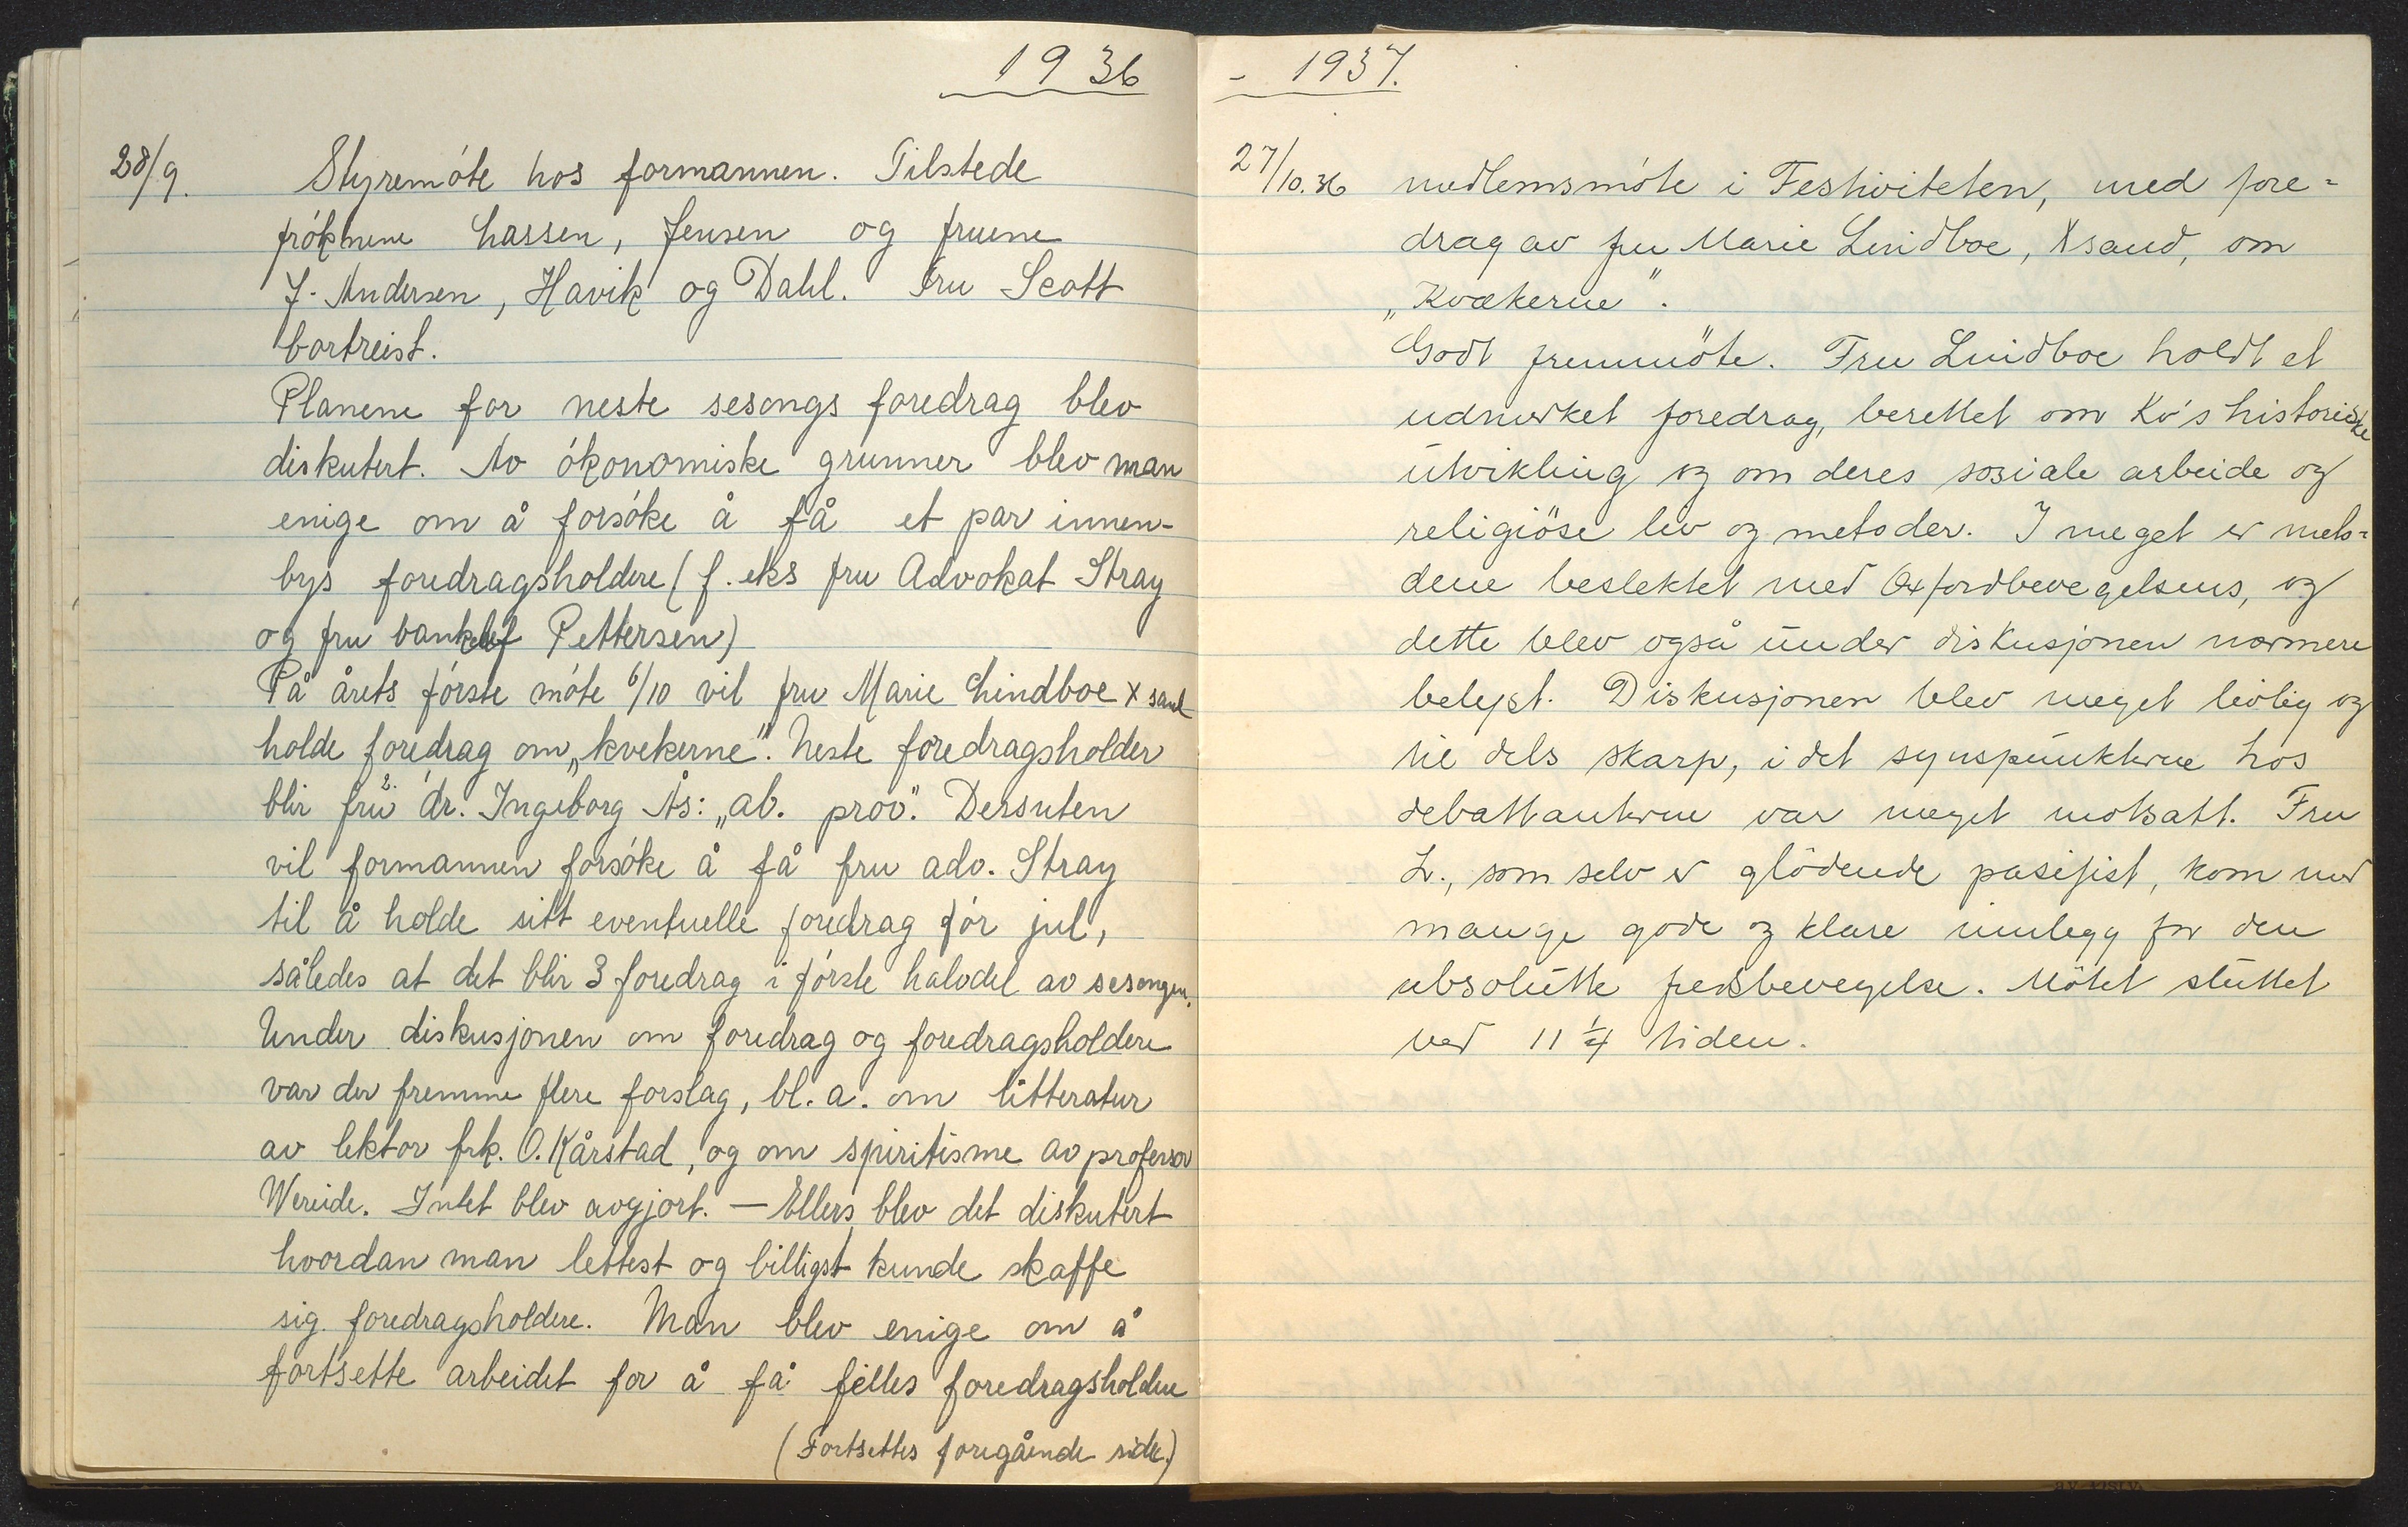 1936
28/9. Styremóte hos formannen. Tilstede
fróknene Lassen, Jensen og fruene
J. Andersen, Havik og Dahl. Fru Scott
bortreist.
Planene for neste sesongs foredrag blev
diskutert. Av ókonomiske grunner blev man
enige om å forsóke å få et par innen-
bys foredragsholdere (f. eks fru Advokat Stray
og fru bankchef Pettersen)
På årets fórste móte 6/10 vil fru Marie Lindboe Xsand
holde foredrag om „kvekerne". Neste foredragsholder
blir fru dr. Ingeborg Ås: „ab. prov." Dersuten
vil formannen forsóke å få fru adv. Stray
til å holde sitt eventuelle foredrag fór jul,
således at det blir 3 foredrag i fórste halvdel av sesongen.
Under diskusjonen om foredrag og foredragsholdere
var der fremme flere forslag, bl. a. om litteratur
av lektor frk. O. Kårstad, og om spiritisme av professor
Wereide. Intet blev avgjort. — Ellers blev det diskutert
hvordan man lettest og billigst kunde skaffe
sig foredragsholdere. Man blev enige om å
fortsette arbeidet for å få felles foredragsholdere
(Fortsettes foregående side.)
- 1937.
27/10.36 medlemsmóte i Festiviteten, med fore=
drag av fru Marie Lindboe, Xsand, om
„Kvækerne".
Godt fremmöte. Fru Lindboe holdt et
udmerket foredrag, berettet om Kv's historiske
utvikling og om deres sosiale arbeide og
religiöse liv og metoder. I meget er meto=
dene beslektet med Oxfordbevegelsens, og
dette blev også under diskusjonen nærmere
belyst. Diskusjonen blev meget livlig og
til dels skarp, idet synspunktene hos
debattantene var meget motsatt. Fru
L., som selv er glödende pasifist, kom med
mange gode og klare innlegg for den
absolutte fredsbevegelse. Mötet sluttet
ved 11 1/4 tiden.